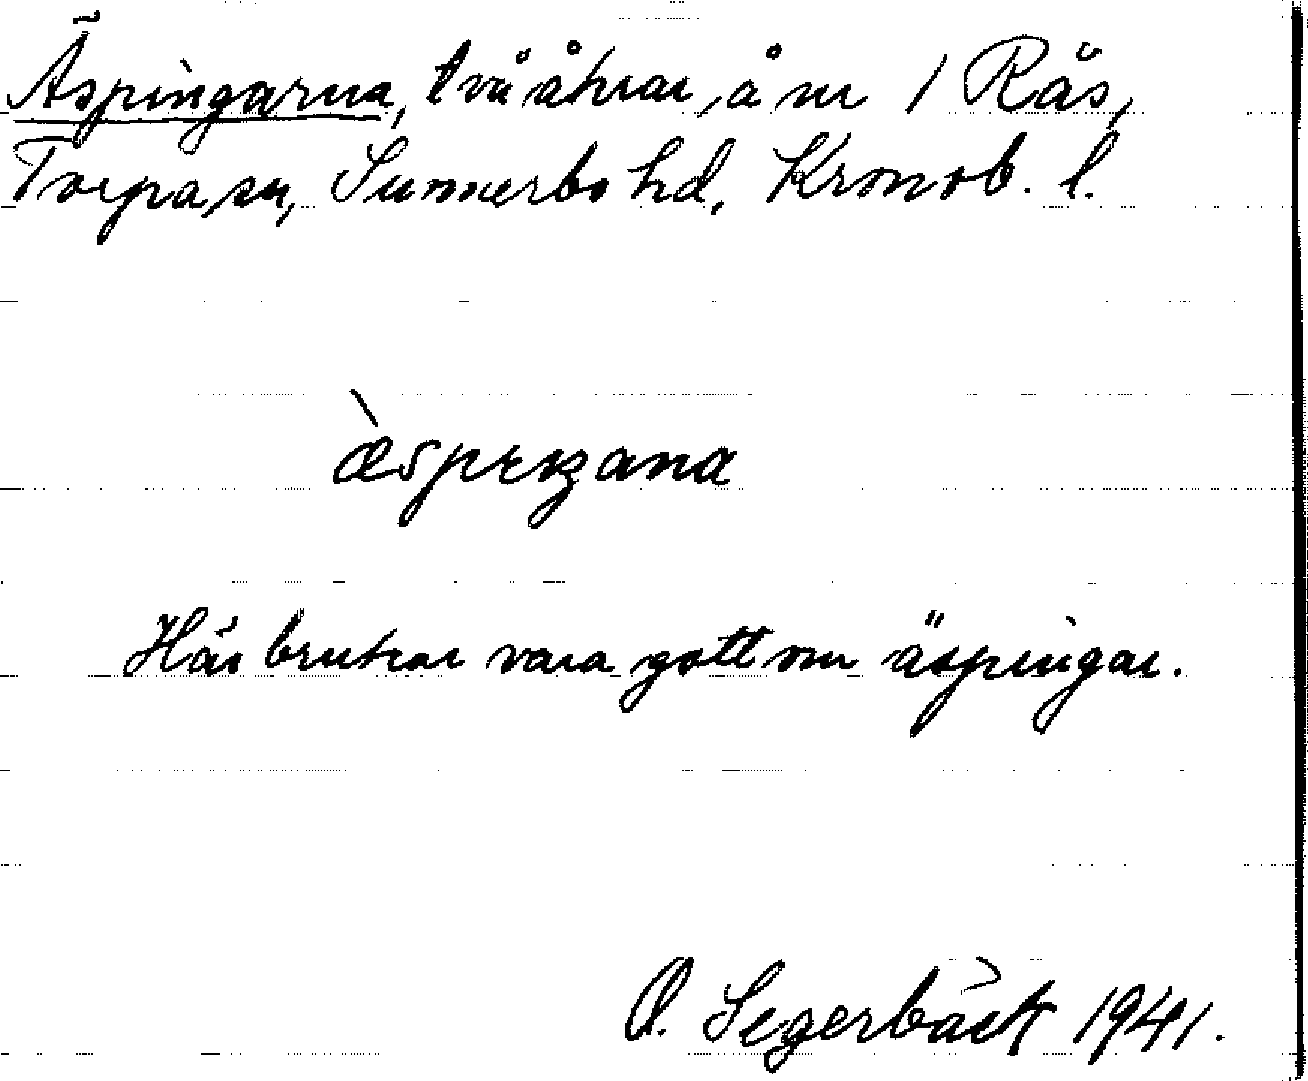 Äspingarna, två åkrar, å nr 1 Rås,
Torpa sn, Sunnerbo hd, Kronob. l.
æ̀spɩŋana
Här brukar vara gott om äspingar.
O. Segerbäck 1941.